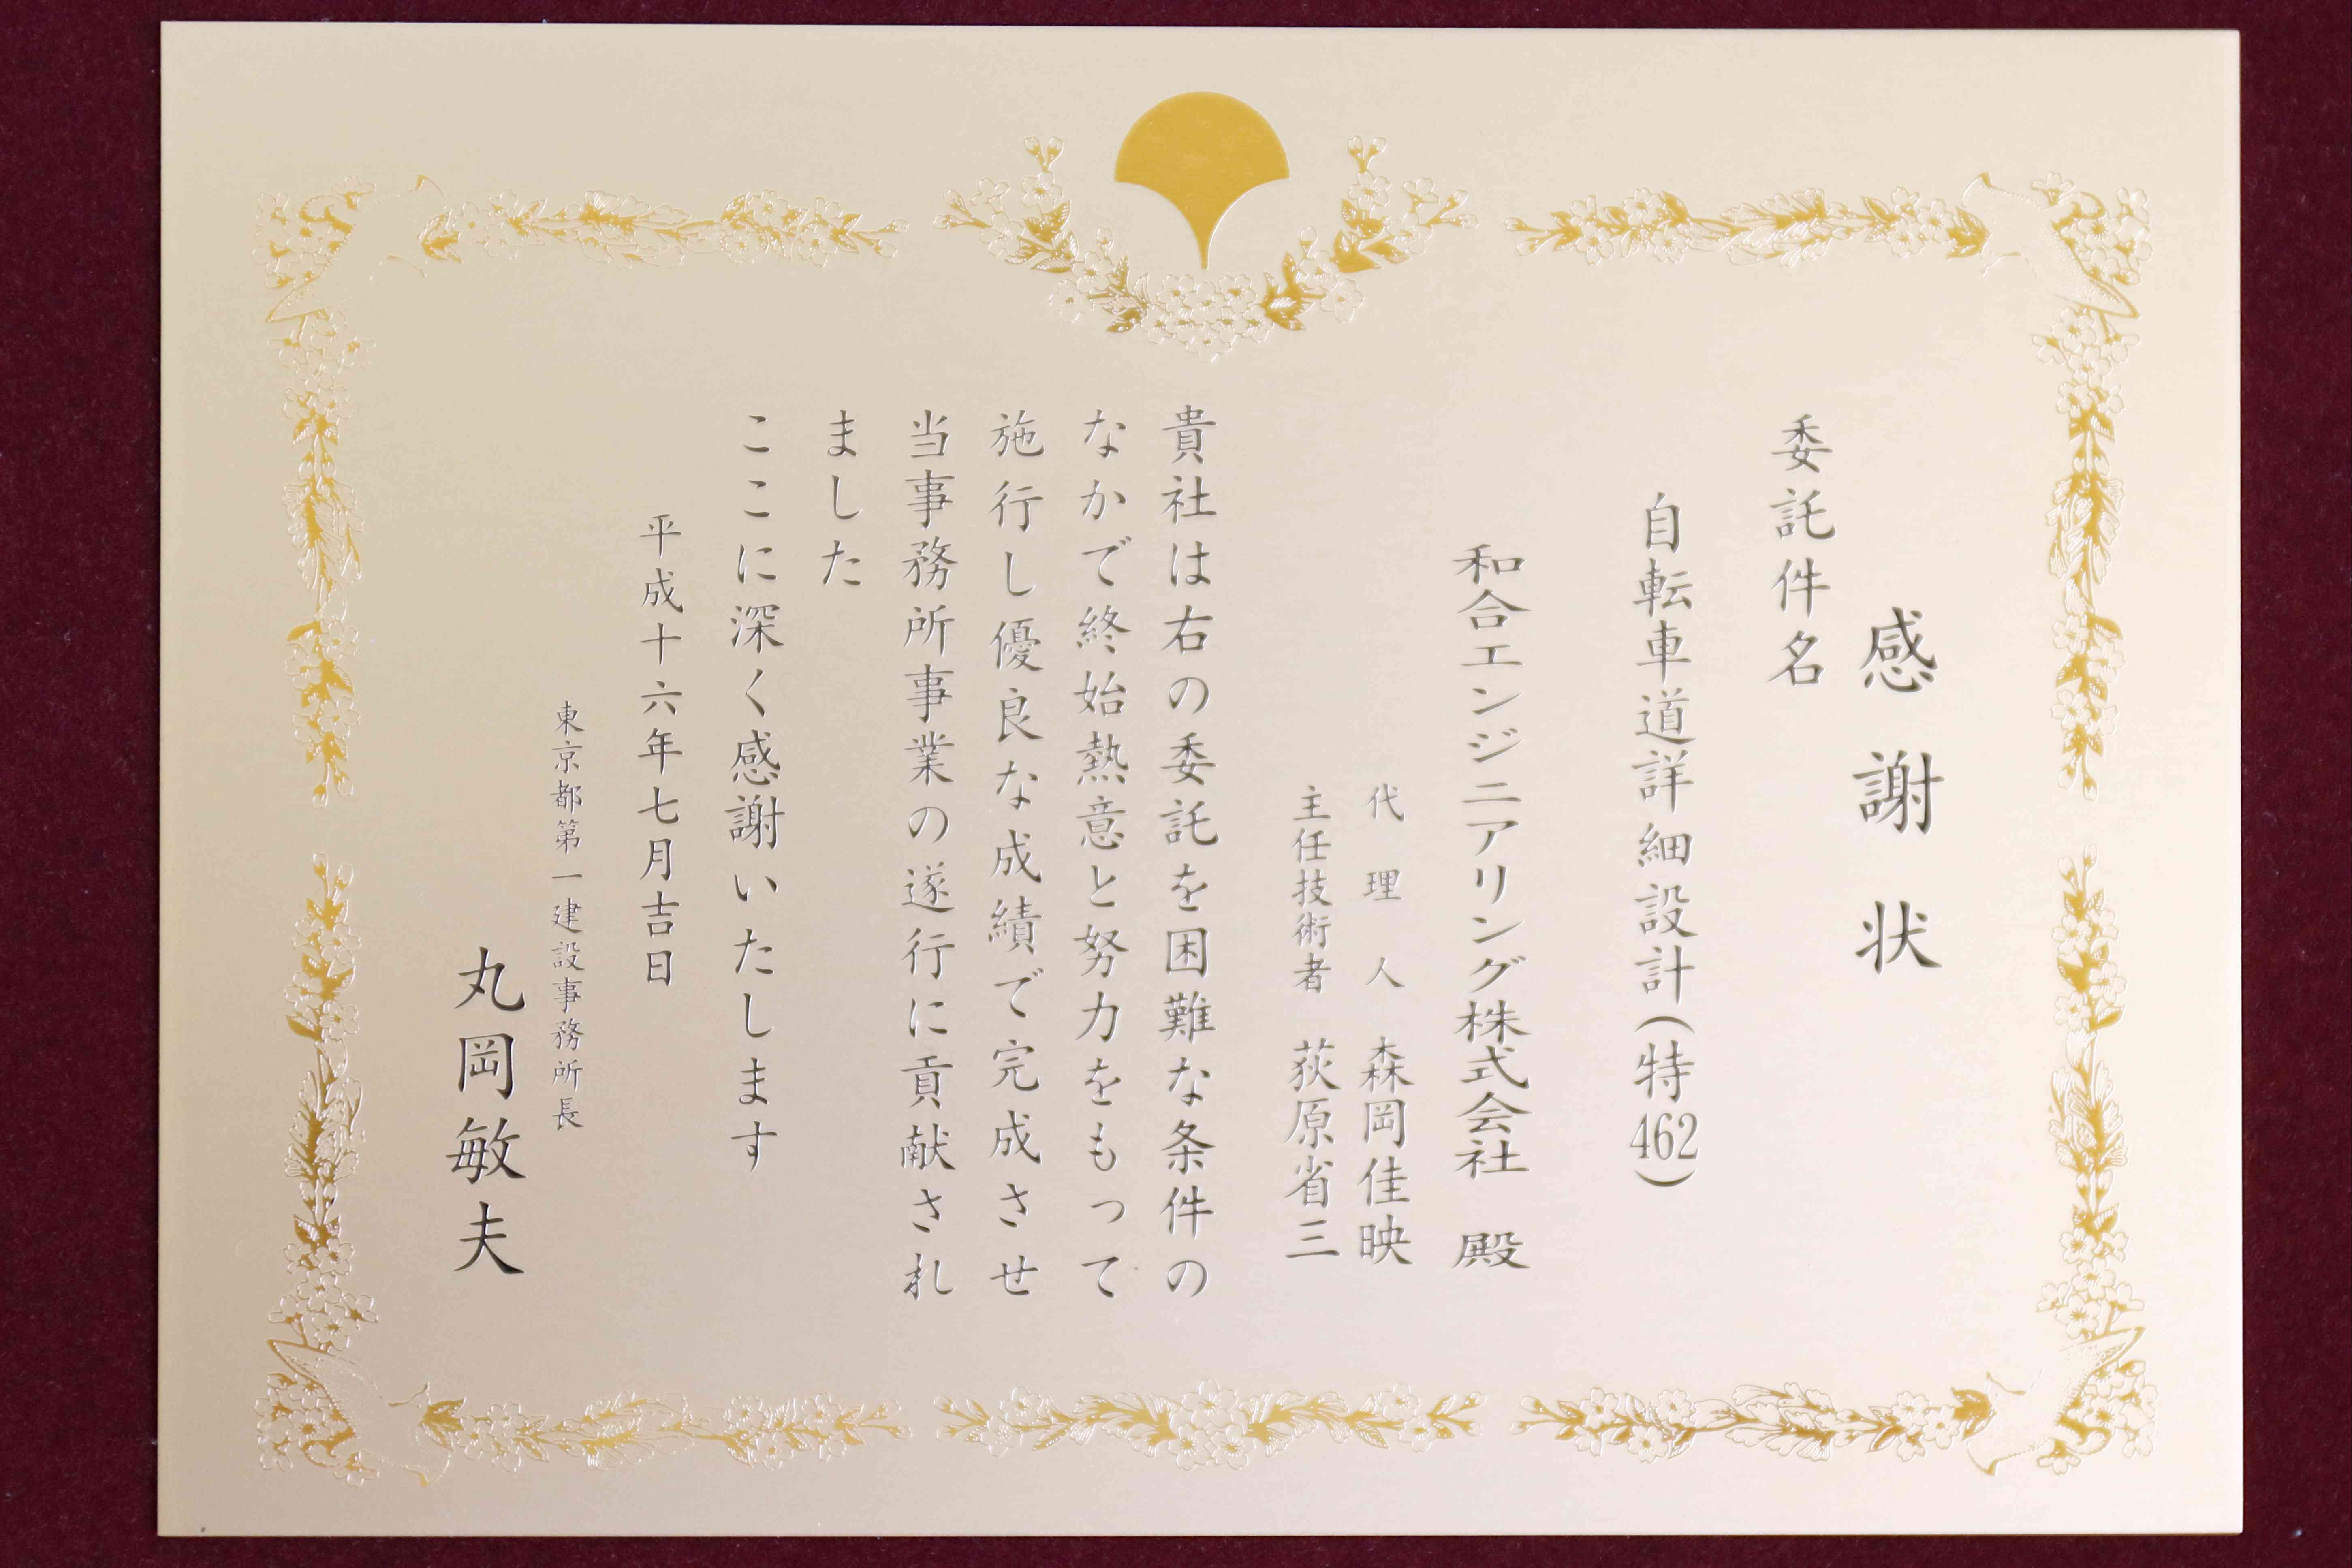 感謝状
委託件名
自転車道詳細設計(特462)
和合エンジニアリング株式会社 殿
代理人 森岡佳映
主任技術者 荻原省三
貴社は右の委託を困難な条件の
なかで終始熱意と努力をもって
施行し優良な成績で完成させ
当事務所事業の遂行に貢献され
ました
ここに深く感謝いたします
平成十六年七月吉日
東京都第一建設事務所長
丸岡敏夫